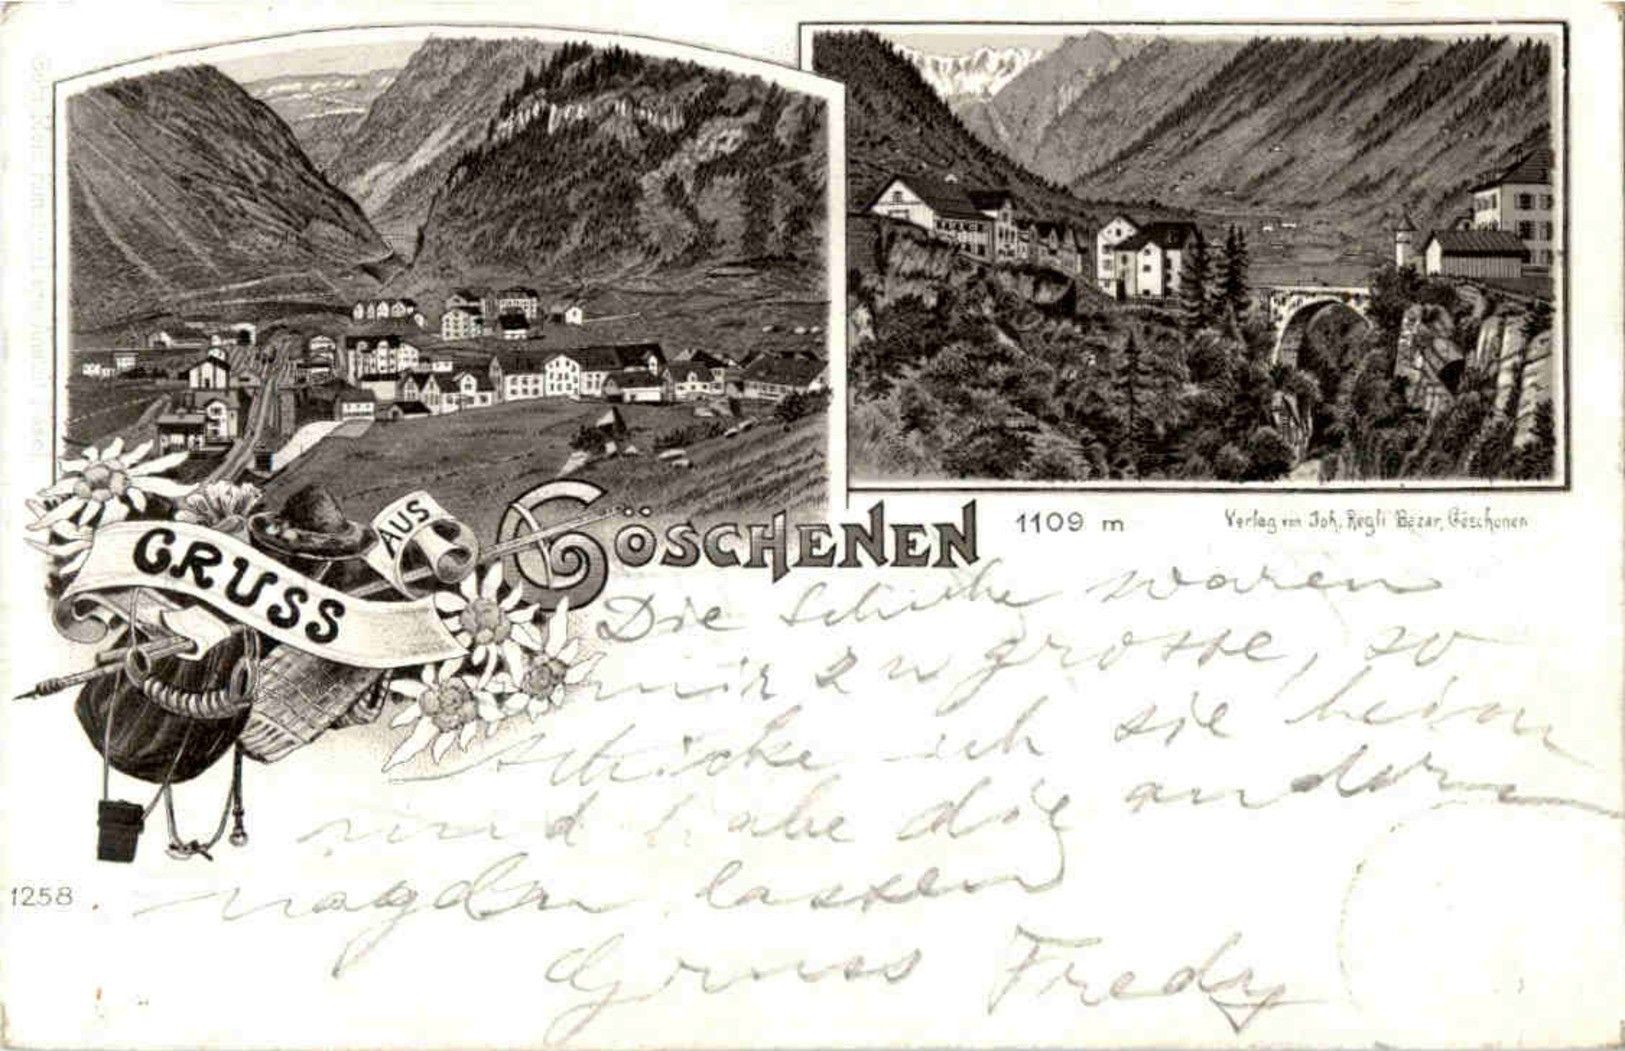 GRUSS
AUS
GÖSCHENEN
1109 m
Verlag von Joh. Regli Bazar, Göschenen
Die Schuhe waren
mir zu grosse, so
schicke ich sie heim
und habe die andern
nageln lassen
Gruss Fredy
1258